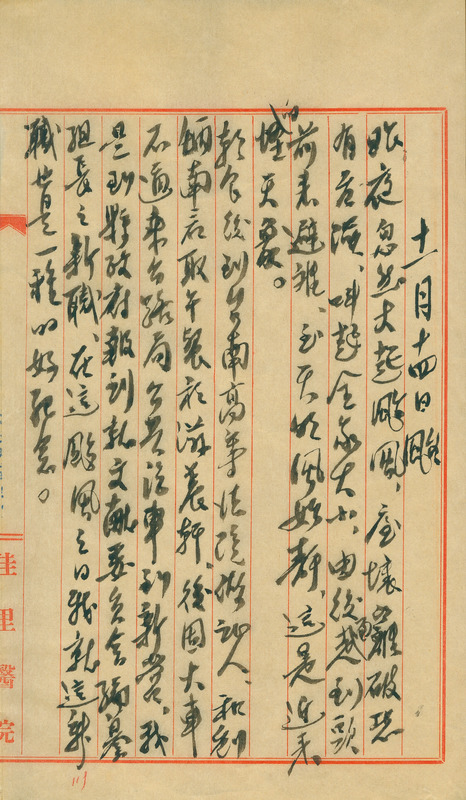 十一月十四日 颱
昨夜忽然大起颱風，屋壞籬破恐
有危險、叫起全家大小、由後到頭
前來避難、至天明風始靜、這是近來
的怪天氣。
朝食後到台南高等法院做証人、和
南君取午餐於滋養軒、後因大車
不通乘公路局公共汽車到新營、我
是到縣政府報到就文獻委員會編纂
組長之新職、在這颱風之日我就這新
職也是一種的好紀念。
佳里醫院